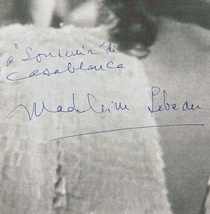 a "Souvenir" di
Casablanca
Madeleine Lebeau